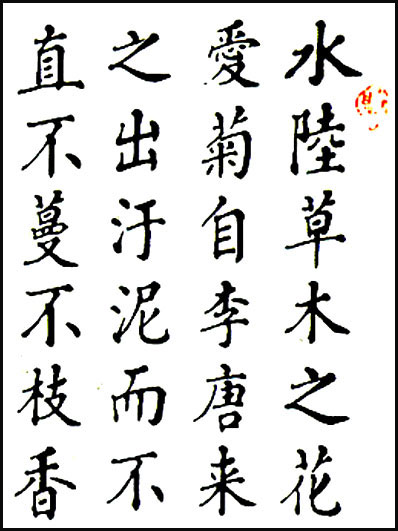 水陸草木之花
愛菊自李唐来
之出汙泥而不
直不蔓不枝香